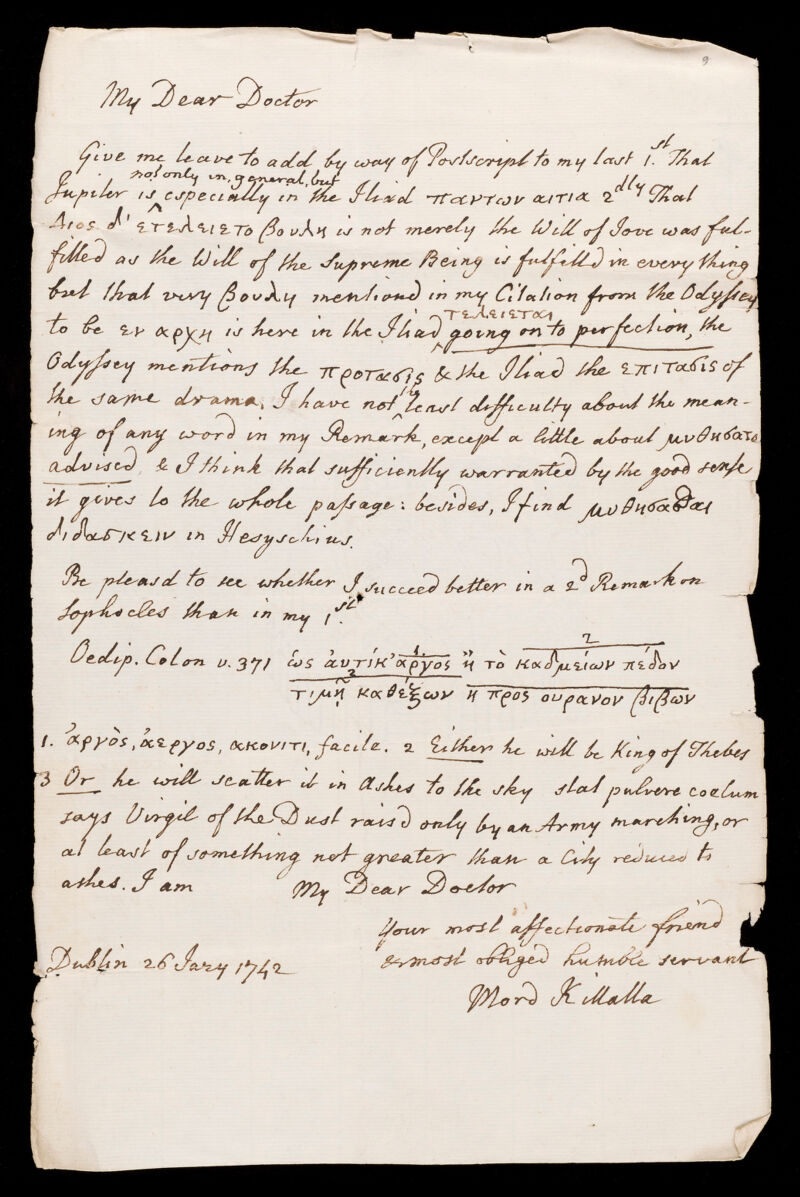 9
My Dear Doctor
Give me leave to add by way of Postscript to my last 1.st That
not only in general, but
Jupiter is especially in the Iliad παντων αιτια 2dly That
Διος δ' ετελειετο βουλη is not merely the Will of Jove was ful-
filled as the Will of the Supreme Being is fulfilld in every thing
but that very βουλη mentiond in my Citation from the Odyssey
τελειεται
to be εν αρχη is here in the Iliad going on to perfection, the
Odyssey mentions the προτασις & the Iliad the επιτασις of
the same drama. I have not ye least difficulty about the mean-
ing of any word in my Remark, except a little about μυθησατο
advised & I think that sufficiently warranted by the good sense
it gives to the whole passage: besides, I find μυθησασθαι
διδασκειν in Hesyschius.
Be pleasd to see whether I succeed better in a 2d Remark on
Sophocles than in my 1.st
1. 2
Oedip. Colon v. 371 ὡς ἀυτίκ' αργος ἢ τὸ καδμείων πέδον
3
τιμῇ καθέξων η προς ουρανον βιβων
1. ἀργὸς, ἀεργος, ακονιτι, facile. 2 Either he will be King of Thebes
3 Or he will scatter it in Ashes to the sky stat pulvere coelum
says Virgil of the Dust raisd only by an Army marching, or
at least of something not greater than a City reduced to
ashes. I am My Dear Doctor
Your most affectionate friend
& most obliged humble servant
Dublin 26 Jary 1742
Mord Killalla